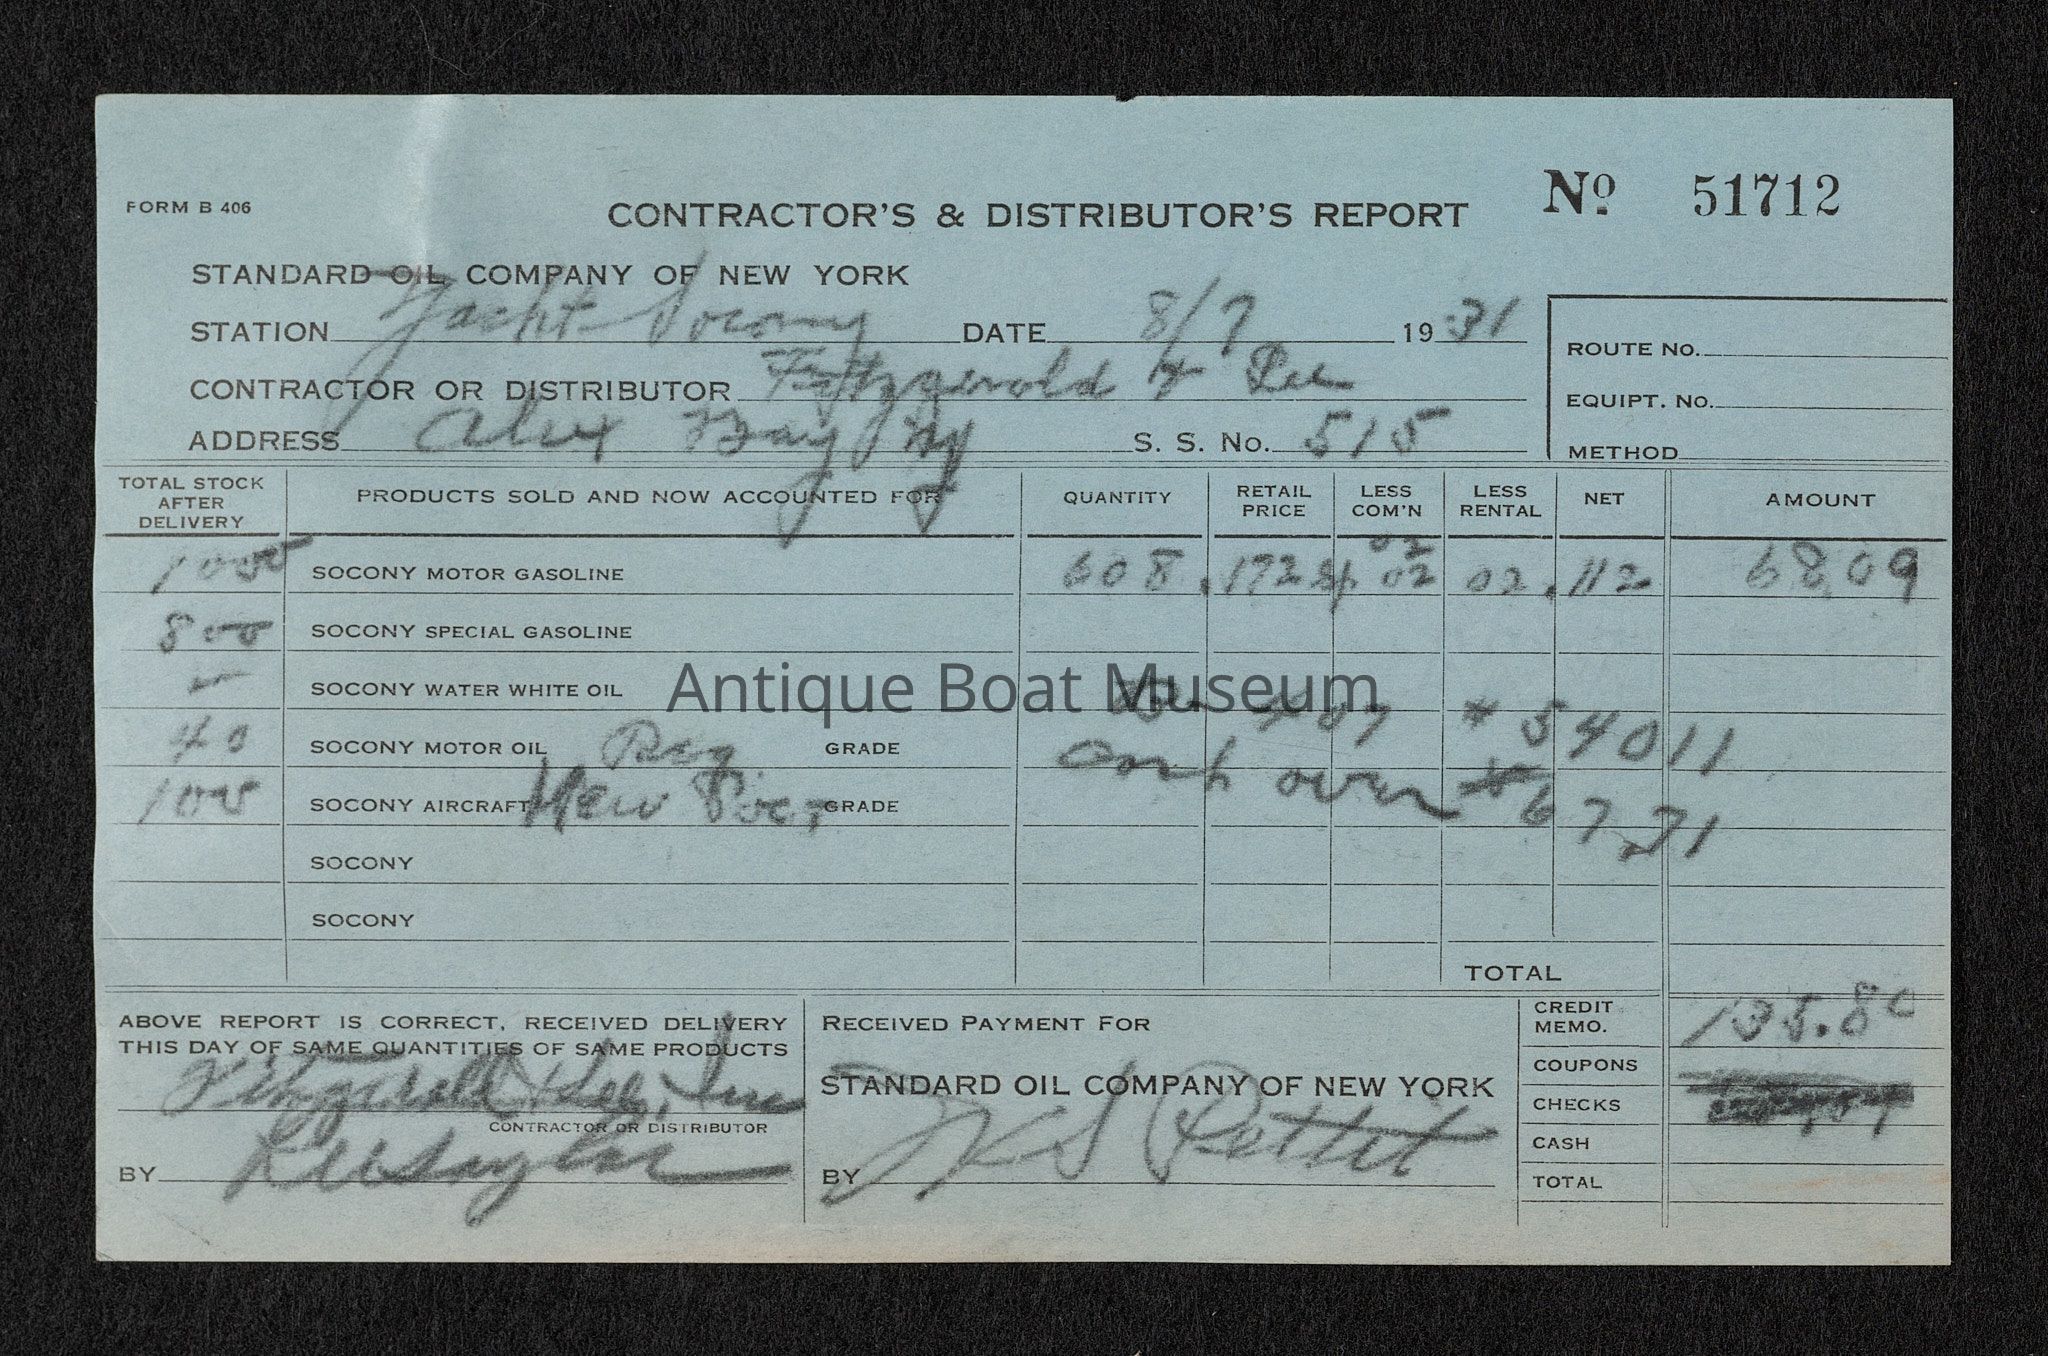 FORM B 406
CONTRACTOR'S & DISTRIBUTOR'S REPORT
Nº 51712
STANDARD OIL COMPANY OF NEW YORK
STATION Yacht Socony DATE 8/7 1931
CONTRACTOR OR DISTRIBUTOR Fitzgerald & Lee
ADDRESS Alex Bay Ny S. S. No. 515
ROUTE No.
EQUIPT. No.
METHOD
TOTAL STOCK AFTER DELIVERY PRODUCTS SOLD AND NOW ACCOUNTED FOR QUANTITY RETAIL PRICE LESS COM'N LESS RENTAL NET AMOUNT
1000 SOCONY MOTOR GASOLINE 608 .172 02 02 02 .112 68.09
800 SOCONY SPECIAL GASOLINE
SOCONY WATER WHITE OIL
Antique Boat Museum
40 SOCONY MOTOR OIL Reg GRADE 54011
100 SOCONY AIRCRAFT New GRADE over 67.71
SOCONY
SOCONY
TOTAL
ABOVE REPORT IS CORRECT, RECEIVED DELIVERY
THIS DAY OF SAME QUANTITIES OF SAME PRODUCTS
Fitzgerald & Lee, Inc
CONTRACTOR OR DISTRIBUTOR
BY
RECEIVED PAYMENT FOR
STANDARD OIL COMPANY OF NEW YORK
BY Pettit
CREDIT MEMO. 135.80
COUPONS
CHECKS
CASH
TOTAL